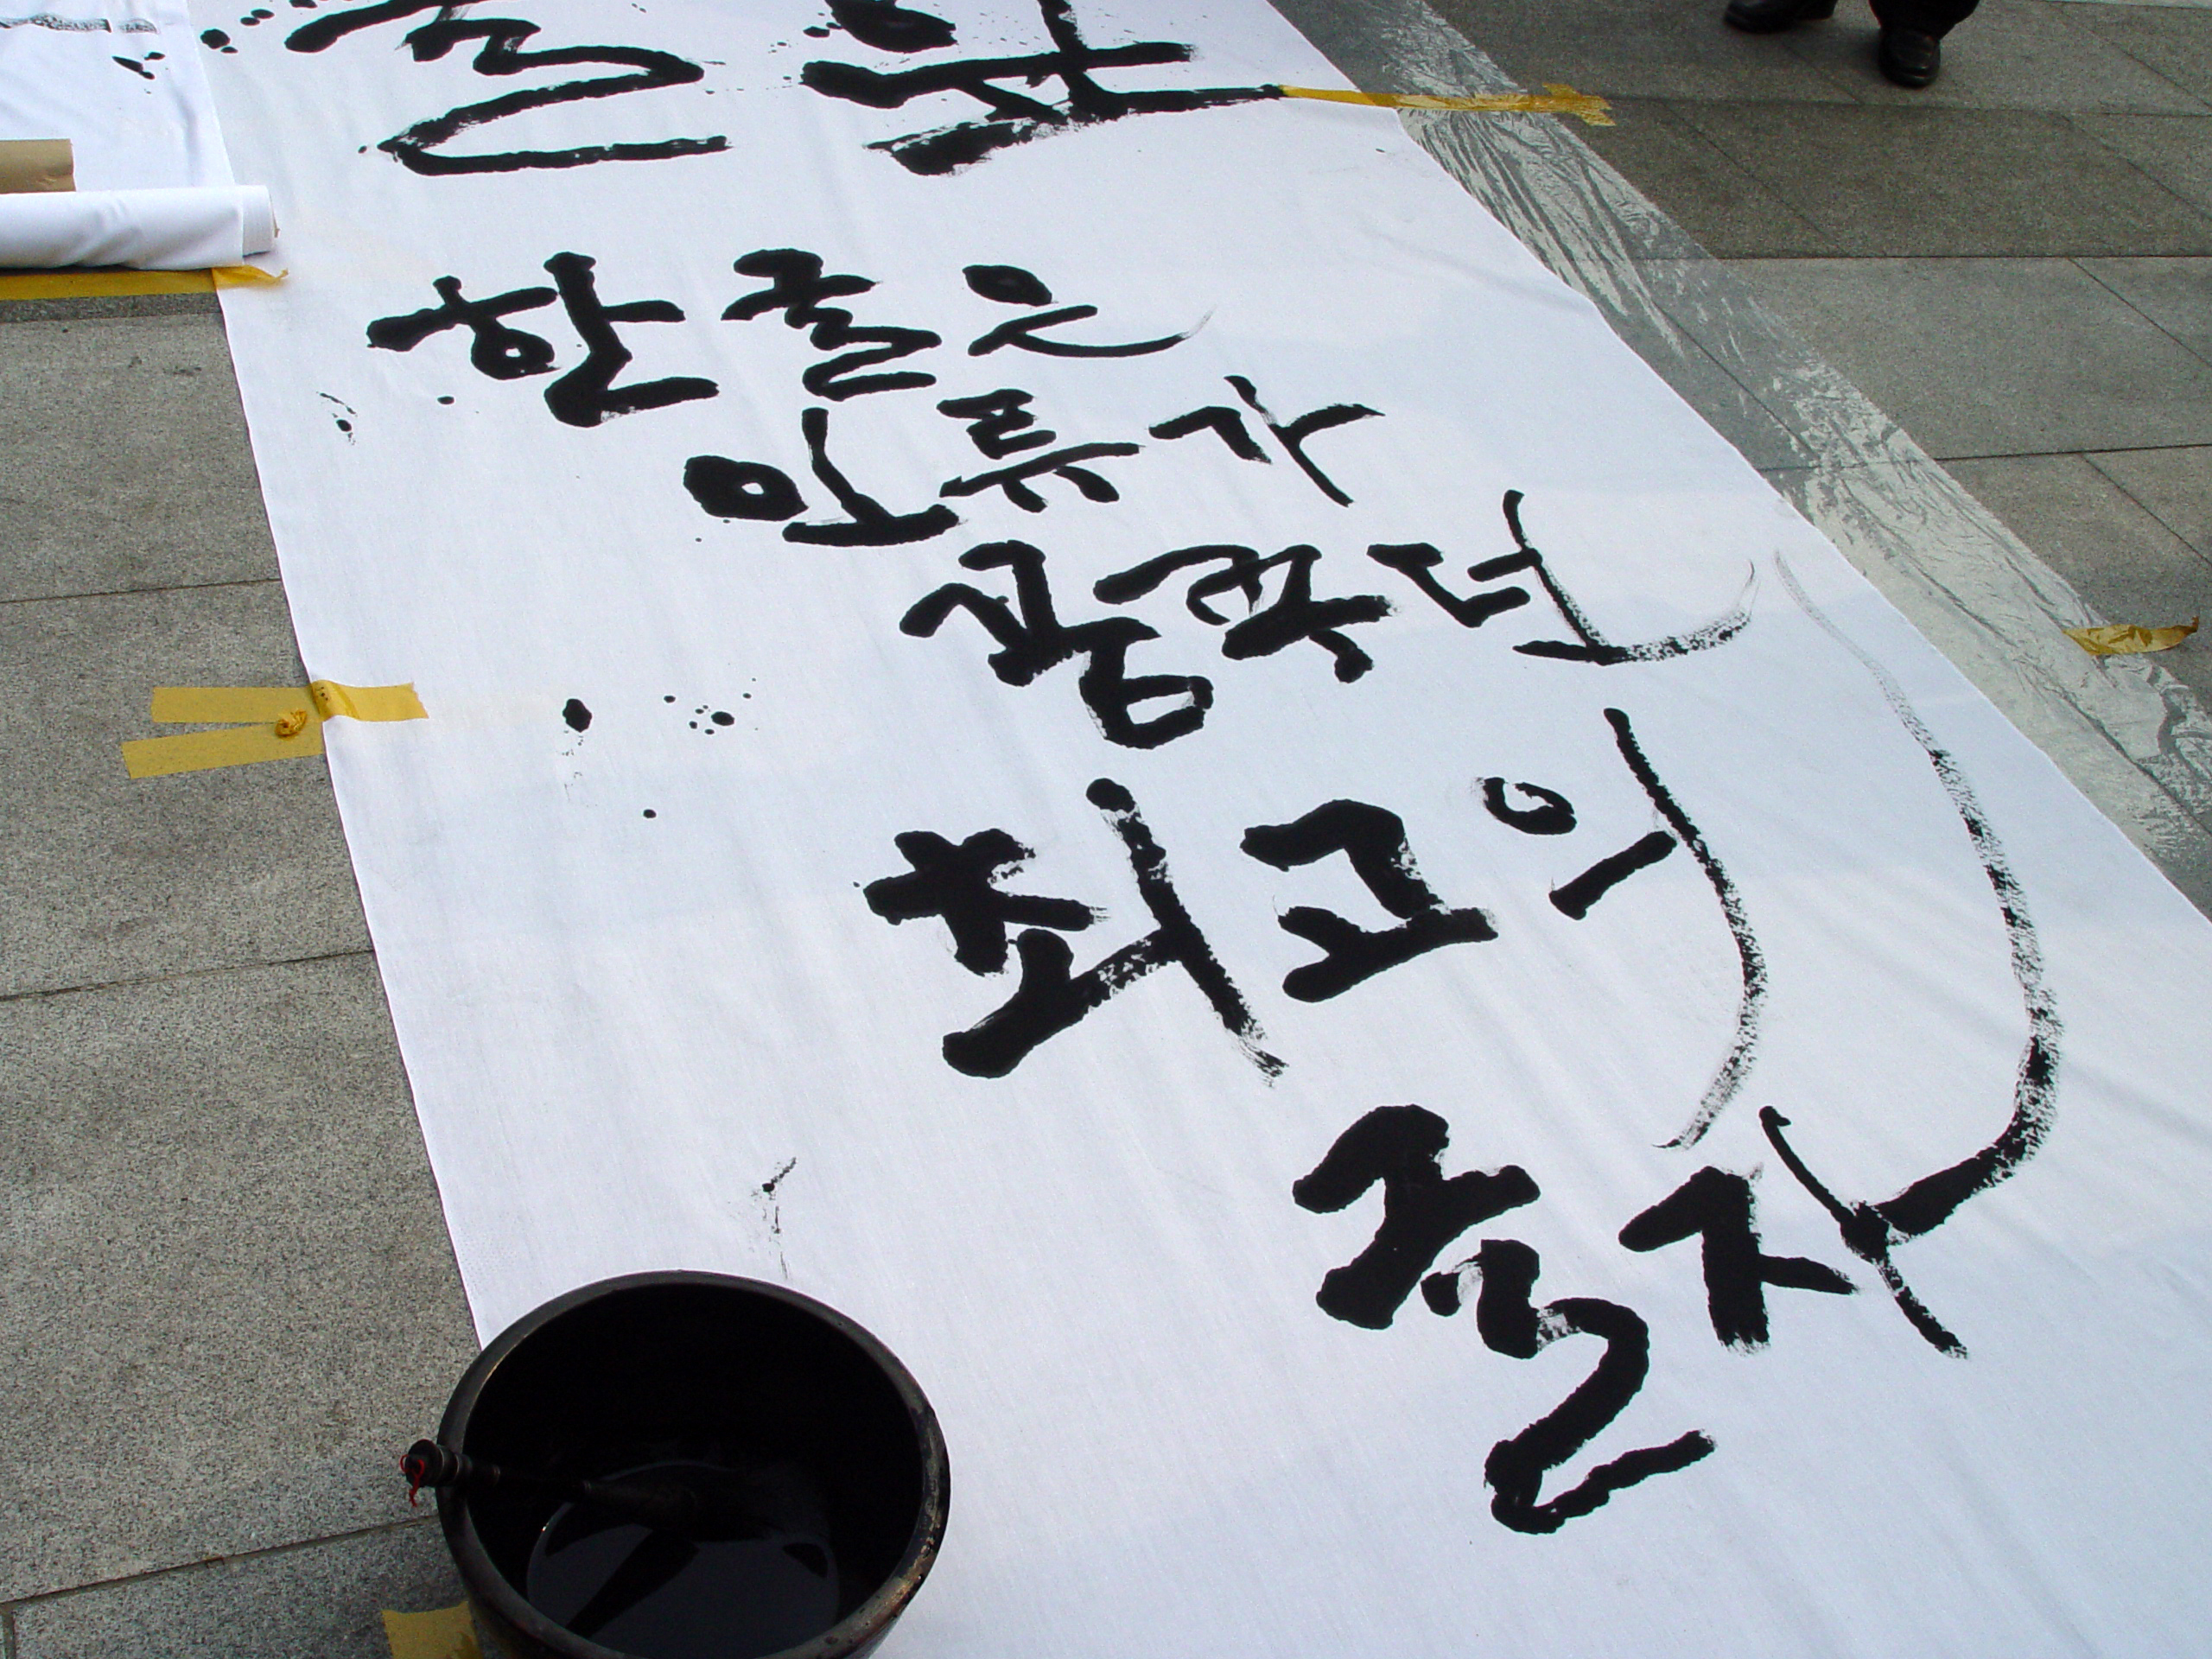 한글은
인류가
꿈꾸던
최고의
글자